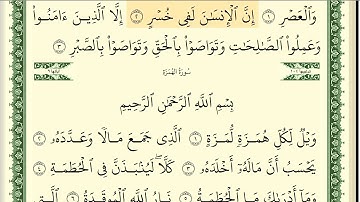 وَٱلۡعَصۡرِ ١ إِنَّ ٱلۡإِنسَٰنَ لَفِي خُسۡرٍ ٢ إِلَّا ٱلَّذِينَ ءَامَنُواْ
وَعَمِلُواْ ٱلصَّٰلِحَٰتِ وَتَوَاصَوۡاْ بِٱلۡحَقِّ وَتَوَاصَوۡاْ بِٱلصَّبۡرِ ٣
سُورَةُ الهُمَزَةِ
بِسۡمِ ٱللَّهِ ٱلرَّحۡمَٰنِ ٱلرَّحِيمِ
وَيۡلٞ لِّكُلِّ هُمَزَةٖ لُّمَزَةٍ ١ ٱلَّذِي جَمَعَ مَالٗا وَعَدَّدَهُۥ ٢
يَحۡسَبُ أَنَّ مَالَهُۥٓ أَخۡلَدَهُۥ ٣ كَلَّاۖ لَيُنۢبَذَنَّ فِي ٱلۡحُطَمَةِ ٤
وَمَآ أَدۡرَىٰكَ مَا ٱلۡحُطَمَةُ ٥ نَارُ ٱللَّهِ ٱلۡمُوقَدَةُ ٦ ٱلَّتِي